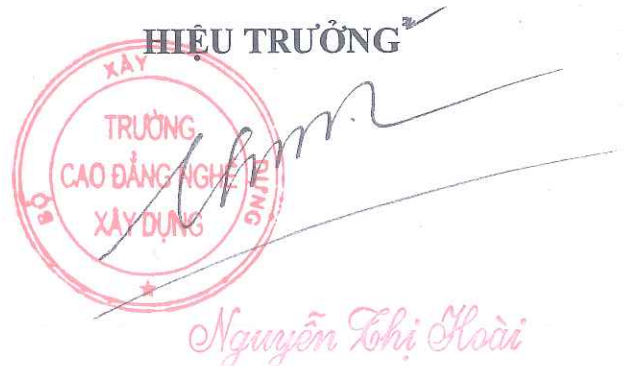 HIỆU TRƯỞNG
BỘ XÂY DỰNG
TRƯỜNG
CAO ĐẲNG NGHỀ
XÂY DỰNG
Nguyễn Thị Hoài